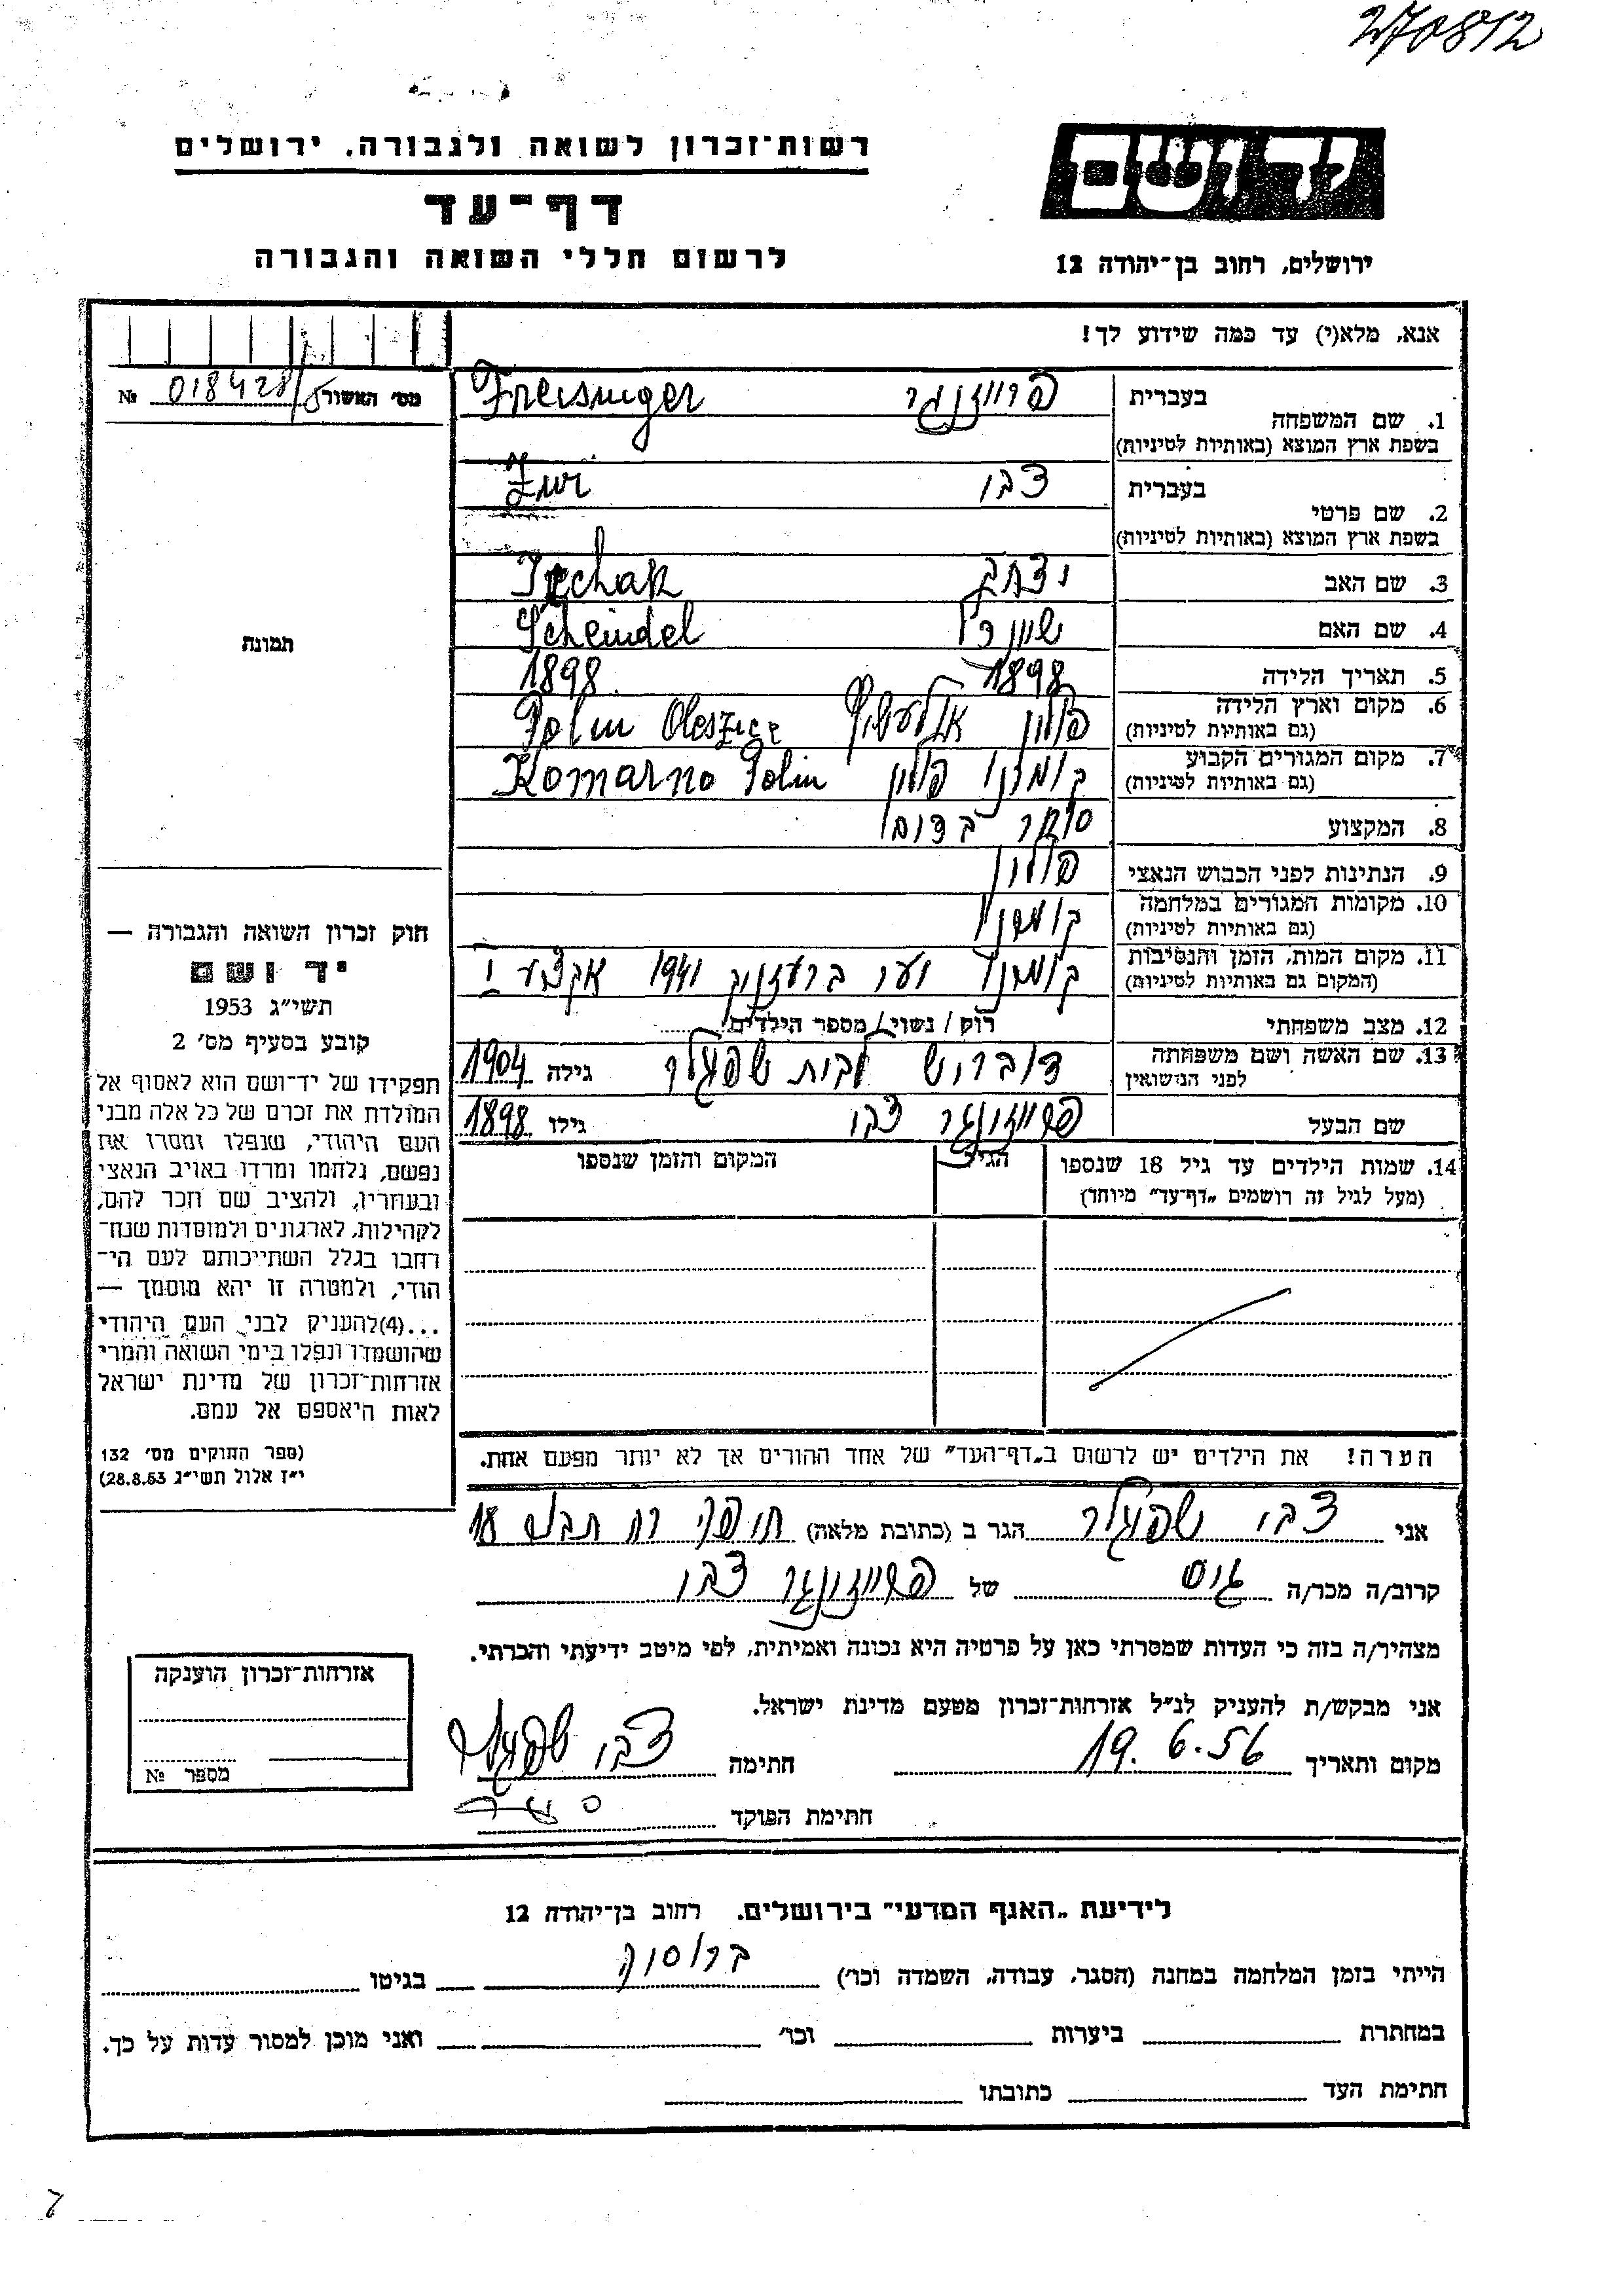 270812
רשות־זכרון לשואה ולגבורה, ירושלים
דף־עד
לרשום חללי השואה והגבורה
יד ושם
ירושלים, רחוב בן־יהודה 12
אנא, מלא(י) עד כמה שידוע לך!
מס׳ האשור 018428/5 №
תמונה
1. שם המשפחה בעברית פרייזנגר Freisinger
בשפת ארץ המוצא (באותיות לטיניות)
2. שם פרטי בעברית צבי Zwi
בשפת ארץ המוצא (באותיות לטיניות)
3. שם האב יצחק Izchak
4. שם האם שיינדל Scheindel
5. תאריך הלידה 1898 1898
6. מקום וארץ הלידה פולין Polin Oleszice
(גם באותיות לטיניות)
7. מקום המגורים הקבוע קומרנו פולין Komarno Polin
(גם באותיות לטיניות)
8. המקצוע סוחר
9. הנתינות לפני הכבוש הנאצי פולין
10. מקומות המגורים במלחמה קומרנו
(גם באותיות לטיניות)
11. מקום המות, הזמן והנסיבות קומרנו 1941
(המקום גם באותיות לטיניות)
12. מצב משפחתי רוק / נשוי / מספר הילדים
13. שם האשה ושם משפחתה לבית שפיגלר גילה 1904
לפני הנישואין
שם הבעל פרייזינגר צבי גילו 1898
14. שמות הילדים עד גיל 18 שנספו הגיל המקום והזמן שנספו
(מעל לגיל זה רושמים „דף־עד״ מיוחד)
חוק זכרון השואה והגבורה —
יד ושם
תשי״ג 1953
קובע בסעיף מס׳ 2
תפקידו של יד־ושם הוא לאסוף אל
המולדת את זכרם של כל אלה מבני
העם היהודי, שנפלו ומסרו את
נפשם, נלחמו ומרדו באויב הנאצי
ובעוזריו, ולהציב שם וזכר להם,
לקהילות, לארגונים ולמוסדות שנח־
רחבו בגלל השתייכותם לעם הי־
הודי, ולמטרה זו יהא מוסמך —
...(4)להעניק לבני העם היהודי
שהושמדו ונפלו בימי השואה והמרי
אזרחות־זכרון של מדינת ישראל
לאות היאספם אל עמם.
(ספר החוקים מס׳ 132
י״ז אלול תשי״ג 28.8.53)
הערה! את הילדים יש לרשום ב„דף־העד״ של אחד ההורים אך לא יותר מפעם אחת.
אני צבי שפיגלר הגר ב (כתובת מלאה) 18
קרוב/ה מכר/ה גיס של פרייזינגר צבי
מצהיר/ה בזה כי העדות שמסרתי כאן על פרטיה היא נכונה ואמיתית, לפי מיטב ידיעתי והכרתי.
אני מבקש/ת להעניק לנ״ל אזרחות־זכרון מטעם מדינת ישראל.
מקום ותאריך 19.6.56 חתימה צבי שפיגלר
חתימת הפוקד
אזרחות־זכרון הוענקה
מספר №
לידיעת „האגף המדעי״ בירושלים. רחוב בן־יהודה 12
הייתי בזמן המלחמה במחנה (הסגר, עבודה, השמדה וכו׳) ברוסיה בגיטו
במחתרת ביערות וכו׳ ואני מוכן למסור עדות על כך.
חתימת העד כתובתו